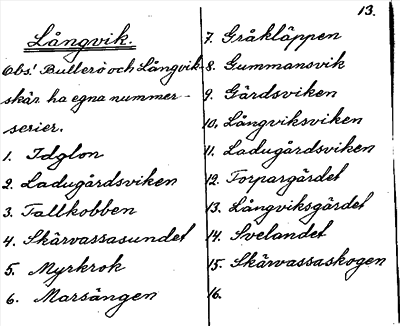 13.
Långvik.
Obs! Bullerö och Långvik-
skär ha egna nummer-
serier.
1. Idglon
2. Ladugårdsviken
3. Tallkobben
4. Skärvassasundet
5. Myrkrok
6. Marsängen
7. Gråkläppen
8. Gummansvik
9. Gärdsviken
10. Långviksviken
11. Ladugårdsviken
12. Torpargärdet
13. Långviksgärdet
14. Svelandet
15. Skärvassaskogen
16.